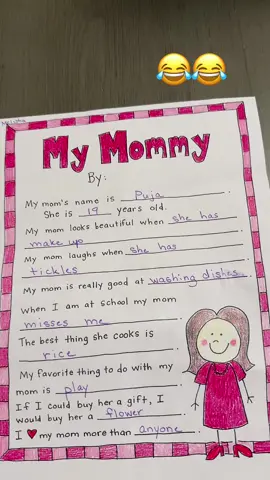 My Mommy
By:
My mom's name is Puja.
She is 19 years old.
My mom looks beautiful when she has
make up.
My mom laughs when she has
tickles.
My mom is really good at washing dishes.
When I am at school my mom
misses me.
The best thing she cooks is
rice.
My favorite thing to do with my
mom is play.
If I could buy her a gift, I
would buy her a flower.
I ❤ my mom more than anyone.